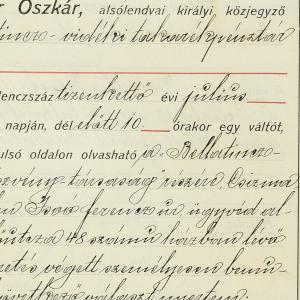 r Oszkár, alsólendvai királyi, közjegyző
tincz-vidéki takarékpénztár
lenczszáz tizenkettő évi július
napján, dél előtt 10 órakor egy váltót,
ulsó oldalon olvasható a "Bellatincz-
szvény-társaság" részére, Csizma
Ivó ferencz ur, ügyvéd al-
utsza 48 számu házban lévő
etés végett személyesen bemu-
övetkező választ nyertem: